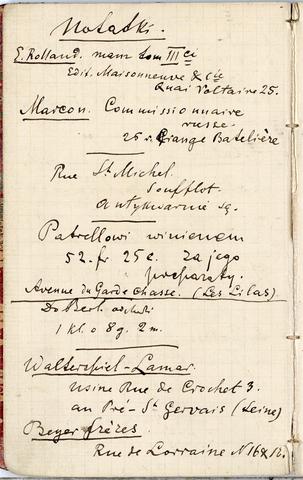 Notatki.
E. Rolland. mam tom III ci
Edit. Maisonneuve & Cie
Quai Voltaire 25.
Marcon. Commissionnaire
russe.
26 r. Grange Batelière
Rue St Michel.
Soufflot.
antykwarnie są.
Patrellowi winienem
52. fr 25 c. za jego
preparaty.
Avenue du Garde Chasse. (Les Lilas)
Do Berl.
1 kl. o 8 g. 2 m.
Walterspiel-Lamar.
usine Rue de Crochet 3.
au Pré-St Gervais (Seine)
Beyer frères.
Rue de Lorraine N 16 & 12.